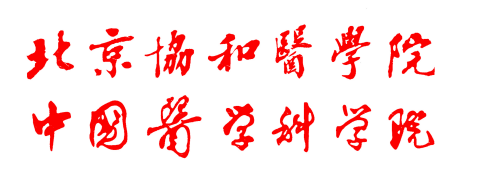 北京協和醫學院
中国醫学科学院